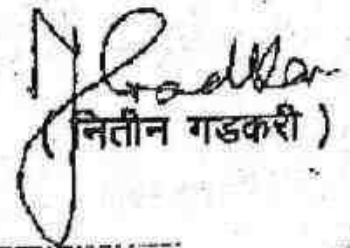 ( नितीन गडकरी )